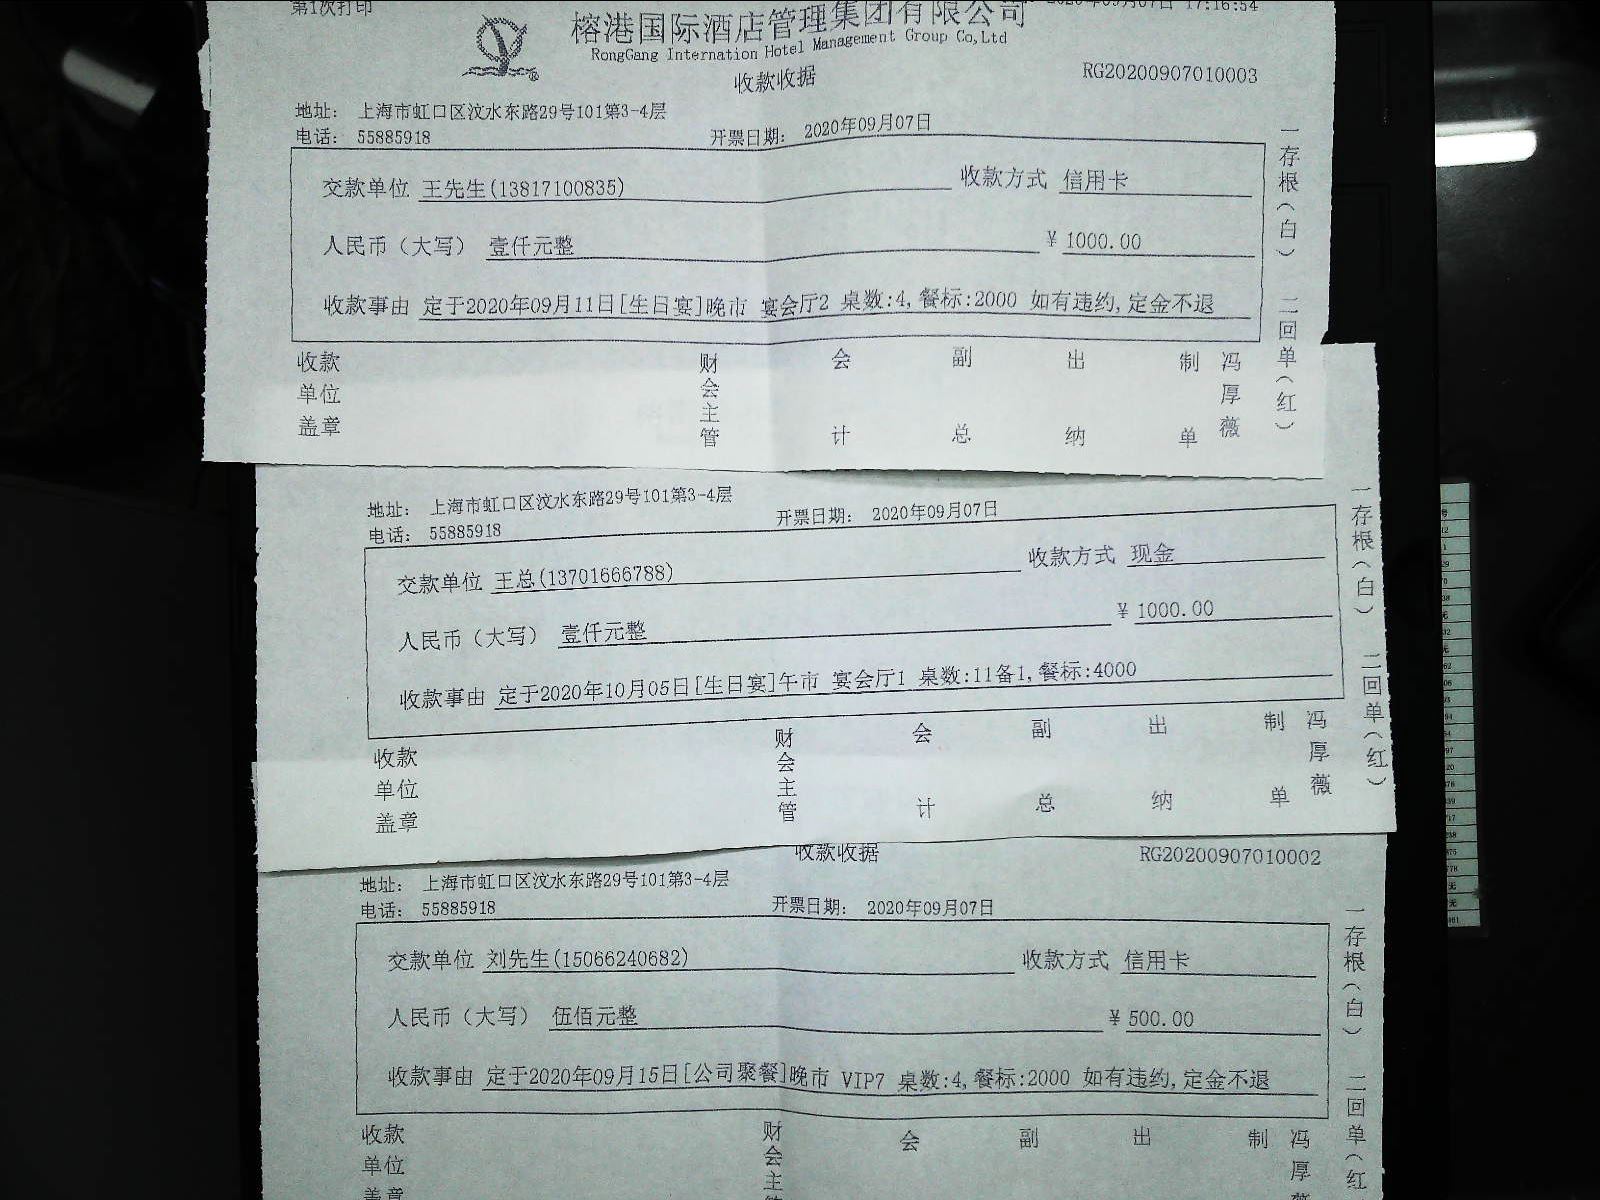 第1次打印
2020年09月07日 17:16:54
榕港国际酒店管理集团有限公司
RongGang Internation Hotel Management Group Co,Ltd
收款收据
RG20200907010003
地址： 上海市虹口区汶水东路29号101第3-4层
电话： 55885918 开票日期： 2020年09月07日
交款单位 王先生(13817100835) 收款方式 信用卡
人民币（大写） 壹仟元整 ¥ 1000.00
收款事由 定于2020年09月11日[生日宴]晚市 宴会厅2 桌数:4,餐标:2000 如有违约,定金不退
收款单位盖章 财会主管 会计 副总 出纳 制单 冯厚薇
一存根（白） 二回单（红）
地址： 上海市虹口区汶水东路29号101第3-4层
电话： 55885918 开票日期： 2020年09月07日
交款单位 王总(13701666788) 收款方式 现金
人民币（大写） 壹仟元整 ¥ 1000.00
收款事由 定于2020年10月05日[生日宴]午市 宴会厅1 桌数:11备1,餐标:4000
收款单位盖章 财会主管 会计 副总 出纳 制单 冯厚薇
一存根（白） 二回单（红）
收款收据
RG20200907010002
地址： 上海市虹口区汶水东路29号101第3-4层
电话： 55885918 开票日期： 2020年09月07日
交款单位 刘先生(15066240682) 收款方式 信用卡
人民币（大写） 伍佰元整 ¥ 500.00
收款事由 定于2020年09月15日[公司聚餐]晚市 VIP7 桌数:4,餐标:2000 如有违约,定金不退
收款单位盖章 财会主 会 副 出 制 冯厚
一存根（白） 二回单（红